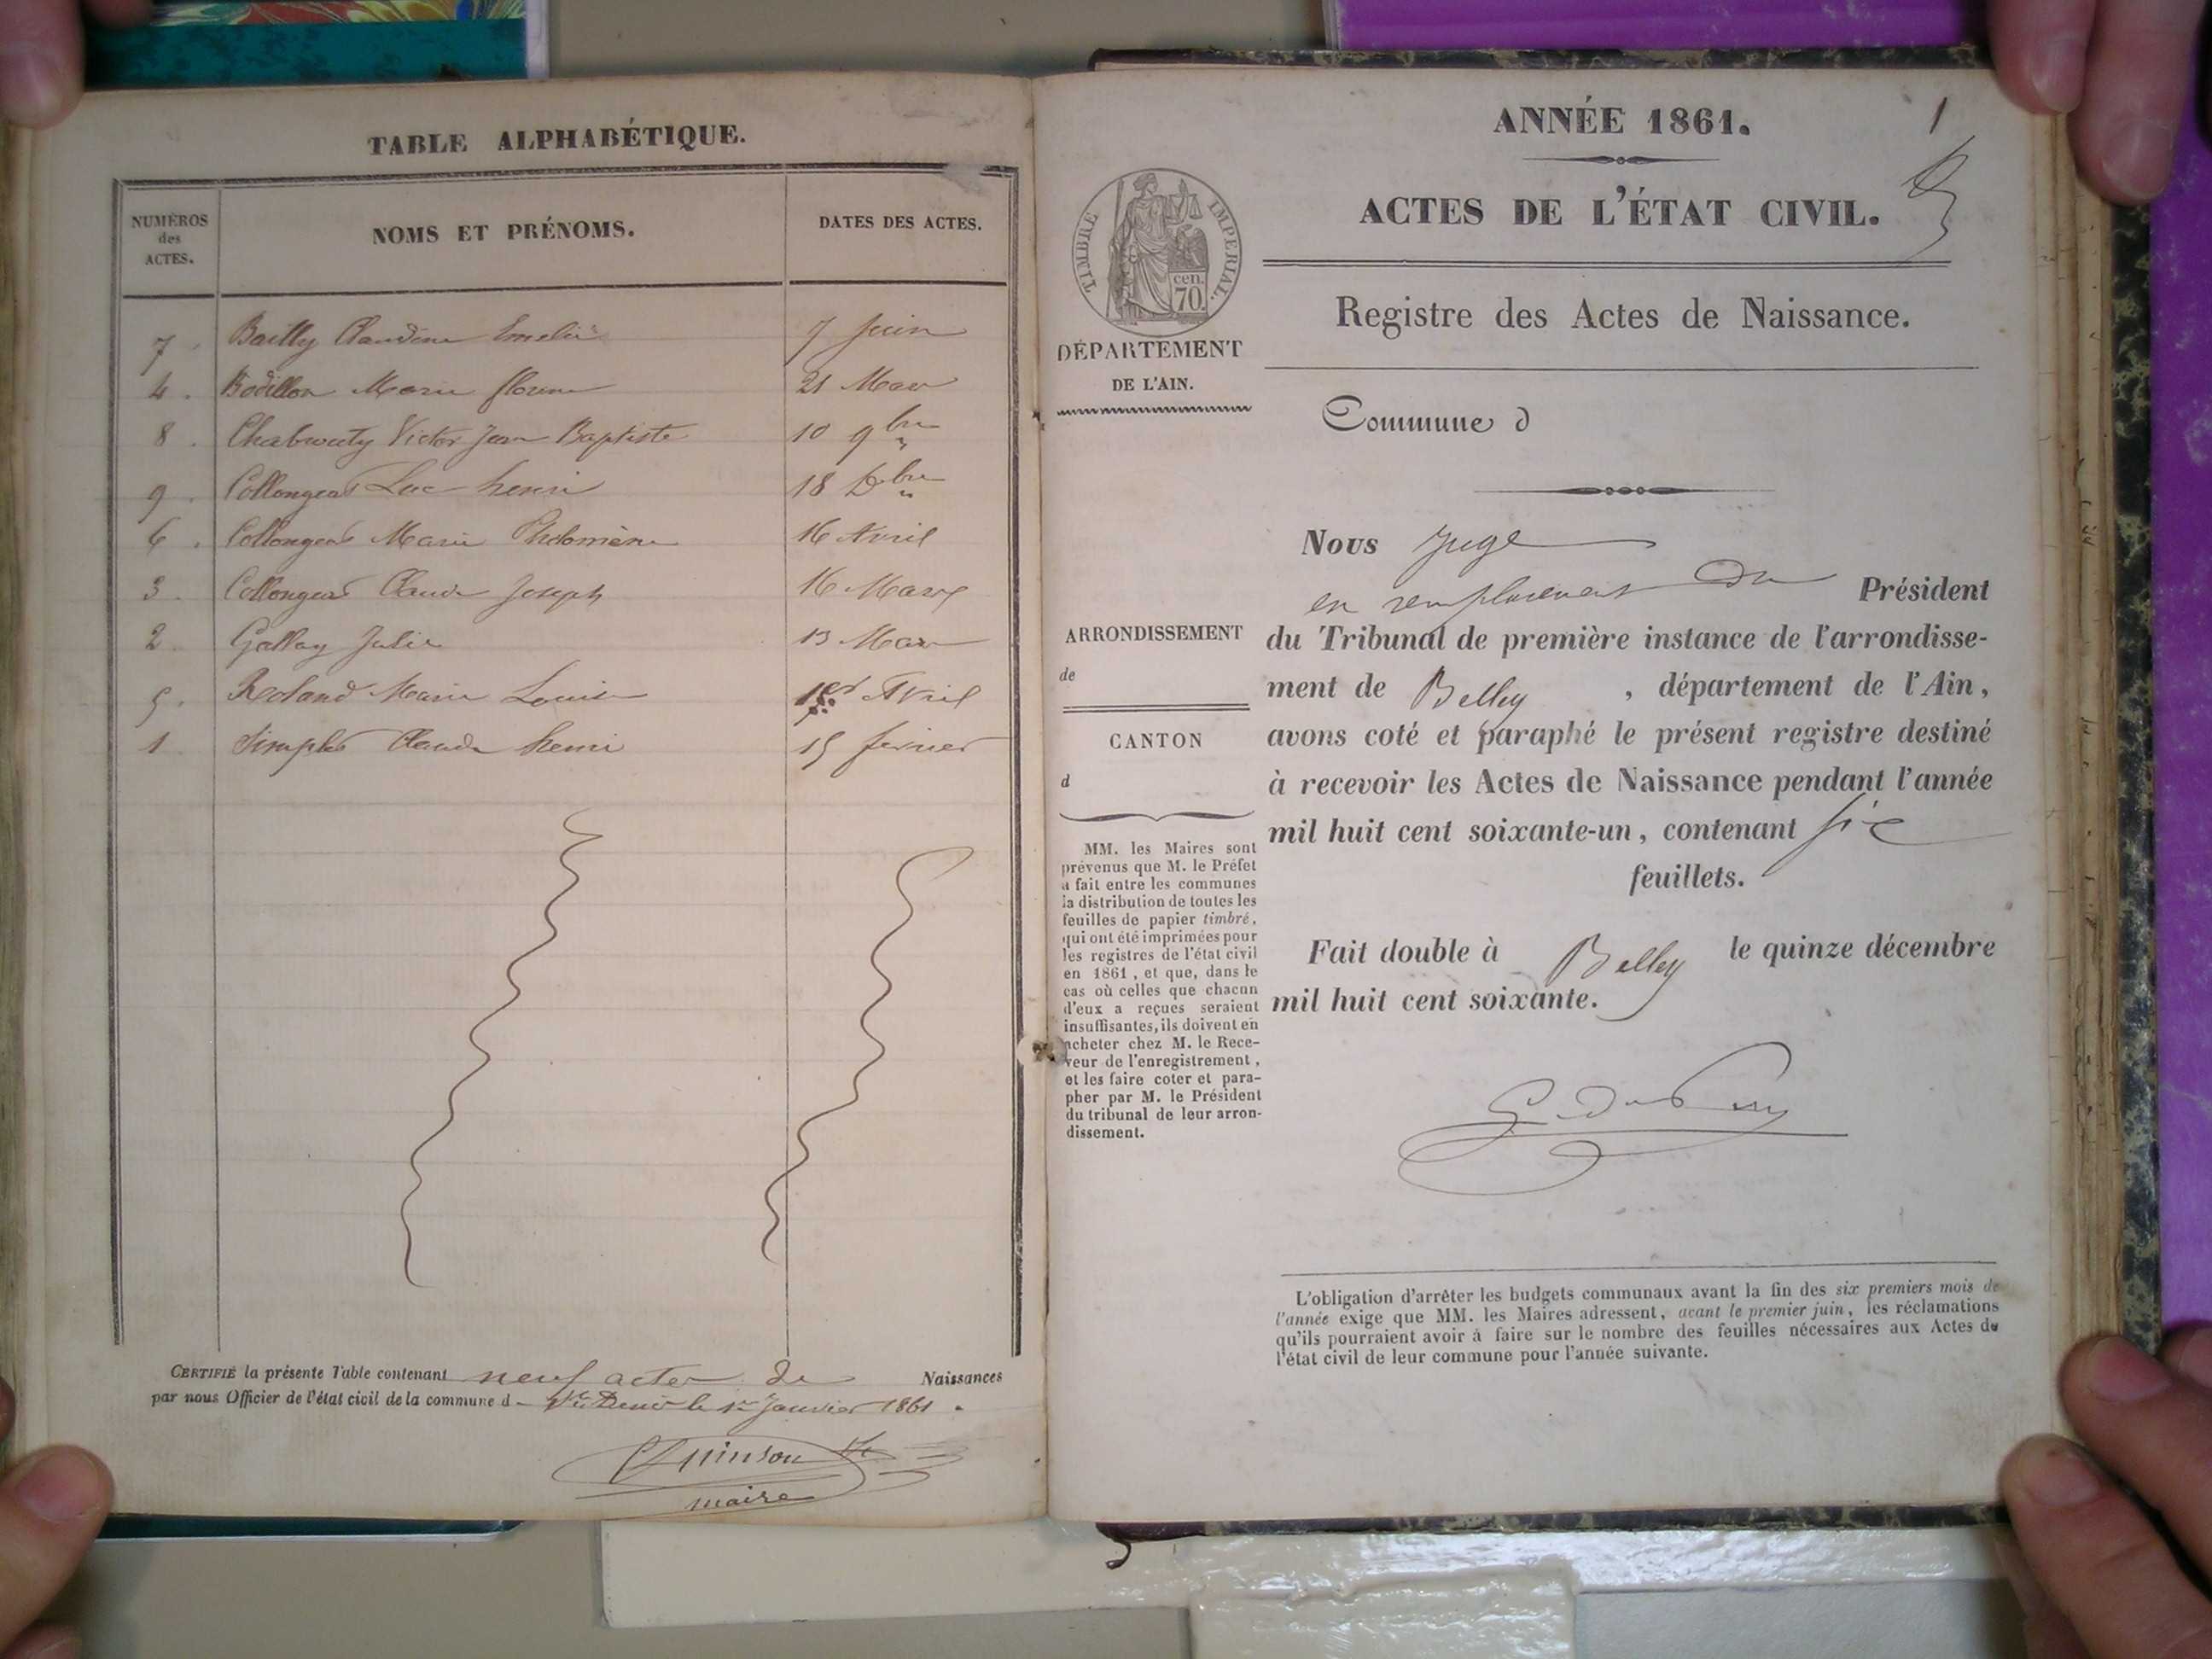 TABLE ALPHABÉTIQUE.
NUMÉROS des ACTES.
NOMS ET PRÉNOMS.
DATES DES ACTES.
7 Bailly Claudine Emelie 7 Juin
4. Bodillon Marie florine 21 Mars
8. Victor Jean Baptiste 10 9bre
9. Collongeat Luc henri 18 Dbre
6. Collongeat Marie Philomène 16 Avril
3. Collongeat Claude Joseph 16 Mars
2. Gallay Julie 13 Mars
5. Roland Marie Louise 1er Avril
1 Claude henri 15 fevrier
CERTIFIÉ la présente Table contenant neuf actes de Naissances
par nous Officier de l'état civil de la commune d le 1er Janvier 1861.
Quinson
maire
1
ANNÉE 1861.
ACTES DE L'ÉTAT CIVIL.
TIMBRE IMPERIAL.
cen.
70
Registre des Actes de Naissance.
DÉPARTEMENT
DE L'AIN.
Commune d
Nous Juge
en remplacement du Président
ARRONDISSEMENT
de
CANTON
d
du Tribunal de première instance de l'arrondisse-
ment de Belley, département de l'Ain,
avons coté et paraphé le présent registre destiné
à recevoir les Actes de Naissance pendant l'année
mil huit cent soixante-un, contenant six
feuillets.
MM. les Maires sont
prévenus que M. le Préfet
a fait entre les communes
la distribution de toutes les
feuilles de papier timbré,
qui ont été imprimées pour
les registres de l'état civil
en 1861, et que, dans le
cas où celles que chacun
d'eux a reçues seraient
insuffisantes, ils doivent en
acheter chez M. le Rece-
veur de l'enregistrement,
et les faire coter et para-
pher par M. le Président
du tribunal de leur arron-
dissement.
Fait double à Belley le quinze décembre
mil huit cent soixante.
L'obligation d'arrêter les budgets communaux avant la fin des six premiers mois de
l'année exige que MM. les Maires adressent, avant le premier juin, les réclamations
qu'ils pourraient avoir à faire sur le nombre des feuilles nécessaires aux Actes de
l'état civil de leur commune pour l'année suivante.